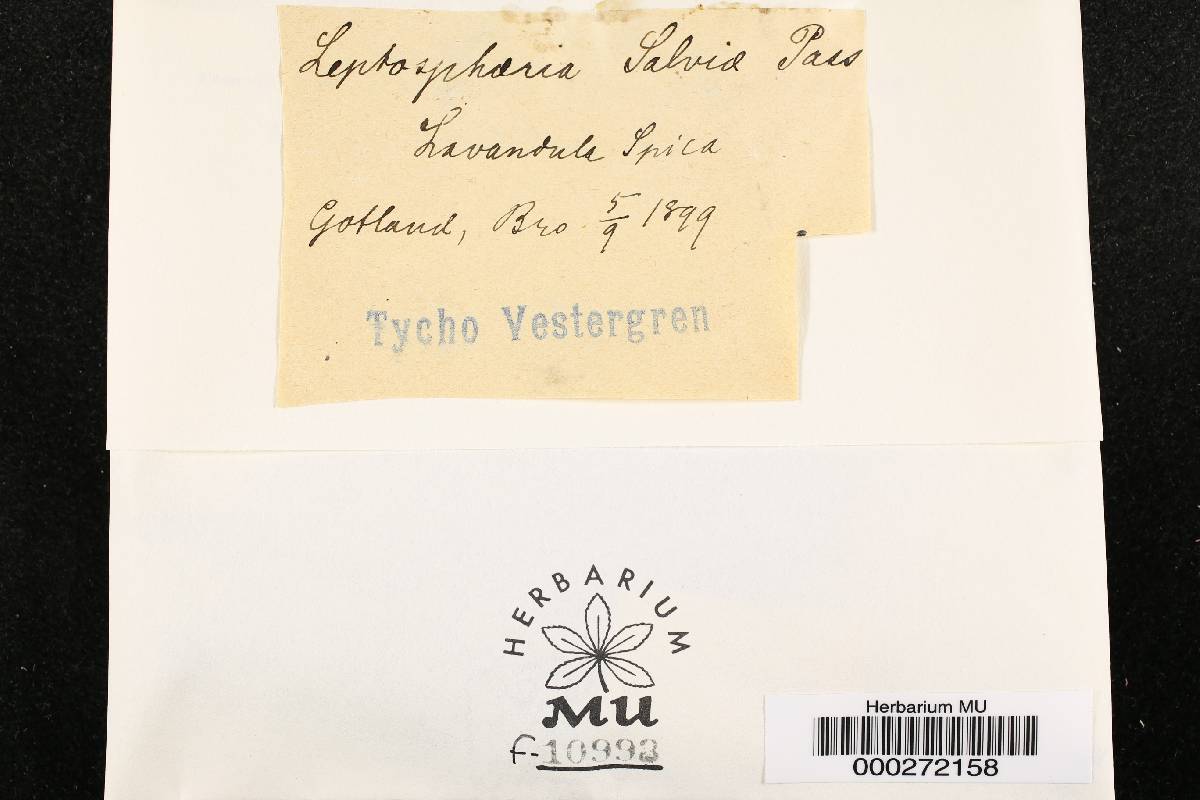 Leptosphæria Salviæ Pass
Lavandula Spica
Gotland, Bro 5/9 1899
Tycho Vestergren
HERBARIUM
MU
F-10993
Herbarium MU
000272158